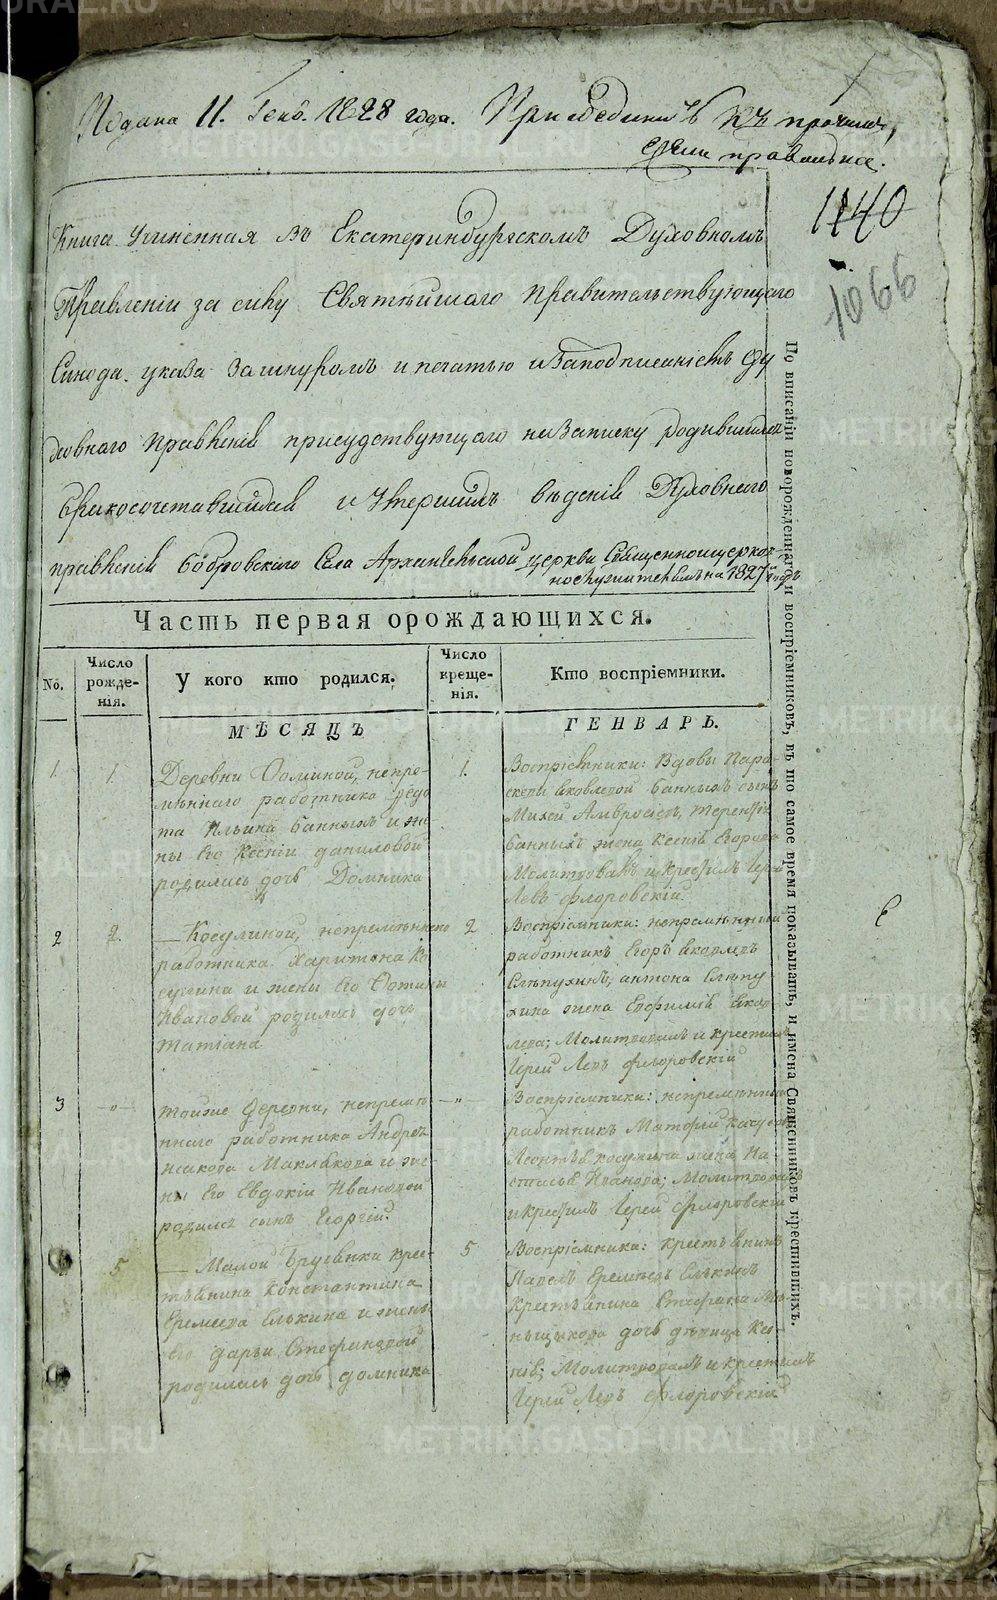 Подана 11. Генв. 1828 года. При къ прочимъ,
1140
1066
Книга Учиненная въ Екатеринбургскомъ Духовномъ
Правленіи за силу Святѣйшаго Правительствующаго
Синода указа за шнуромъ и печатью и заподписаніемъ Ду
ховнаго Правленія присудствующаго на записку родившихся
бракосочетавшихся и Умершихъ вѣденія Духовнаго
правленія Бобровскаго Села Архангельской церкви Священноцерков
нослужителямъ на 1827 годъ
Часть первая орождающихся.
No.
Число рожде- нія.
У кого кто родился.
Число креще- нія.
Кто воспріемники.
МѢСЯЦЪ
ГЕНВАРЬ.
1.
1.
Деревни непре-
мѣннаго работника
та Ильина Банныхъ и же
ны его Ксеніи Даниловой
родилась дочь Домника
1.
Воспріемники: Вдовы Пара-
скевы Яковлевой Банныхъ сынъ
Михей Амвросіевъ, Терентія
Банныхъ жена Егорова
Молитвовалъ и крестилъ Іерей
Левъ Флоровскій.
2
2.
— Косулиной, непремѣннаго
работника Харитона Ко
сулина и жены его Фотиньи
Ивановой родилась дочь
Татіана
2
Воспріемники: непремѣнный
работникъ Егоръ Яковлевъ
Слѣпухинъ, Антона Слѣпу
хина жена Евфимія Яков
лева; Молитвовалъ и крестилъ
Іерей Левъ Флоровскій
3
—"—
Тойже деревни, непремѣ
ннаго работника Андрея
Исакова Маклакова и же-
ны его Евдокіи Ивановой
родился сынъ Георгій.
—"—
Воспріемники: непремѣнный
работникъ Матфей
Леонтья Косулина жена На-
стасья Иванова; Молитвовалъ
и крестилъ Іерей Флоровскій
5
— Малой Брусянки крес-
тьянина Константина
Еремеева Елькина и жены
его Дарьи Стефановой
родилась дочь Домника
5
Воспріемника: крестьянинъ
Павелъ Еремеевъ Елькинъ
крестьянина Стефана
дочь дѣвица Ксе-
нія; Молитвовалъ и крестилъ
Іерей Левъ Флоровскій
По вписаніи новорожденнаго и воспріемниковъ, въ то самое время показывать, и имена Священниковъ крестившихъ.
METRIKI.GASO-URAL.RU